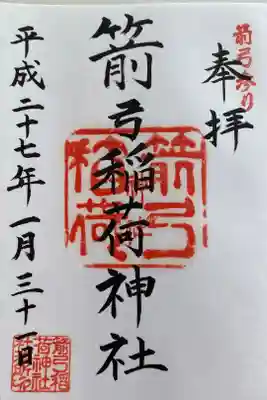 箭弓参り
奉拝
箭弓稲荷神社
箭弓
稲荷
平成二十七年一月三十一日
箭弓稲
荷神社